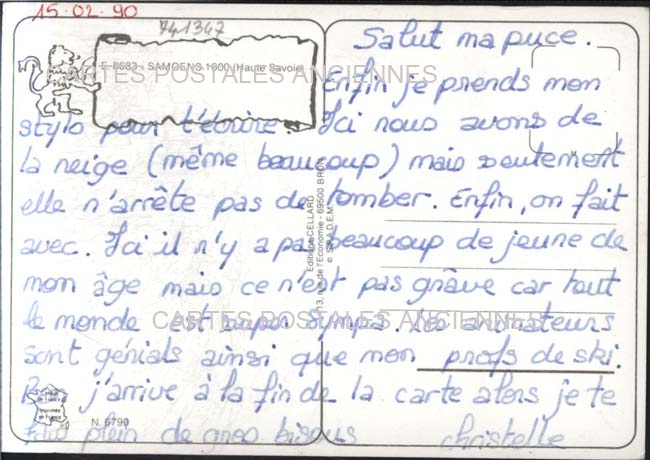 15-02-90
741347
E-8683 - SAMOENS 1600 (Haute Savoie)
CARTES POSTALES ANCIENNES
Salut ma puce.
Enfin je prends mon
stylo pour t'écrire. Ici nous avons de
la neige (même beaucoup) mais seulement
elle n'arrête pas de tomber. Enfin, on fait
avec. Ici il n'y a pas beaucoup de jeune de
mon âge mais ce n'est pas grâve car tout
le monde est super sympa. Les animateurs
sont génials ainsi que mon profs de ski.
j'arrive à la fin de la carte alors je te
fais plein de gros bisous christelle
CARTES POSTALES ANCIENNES
Editions CELLARD
13, rue de l'Economie - 69500 BRON
© S.P.A.D.E.M.
N. 6790